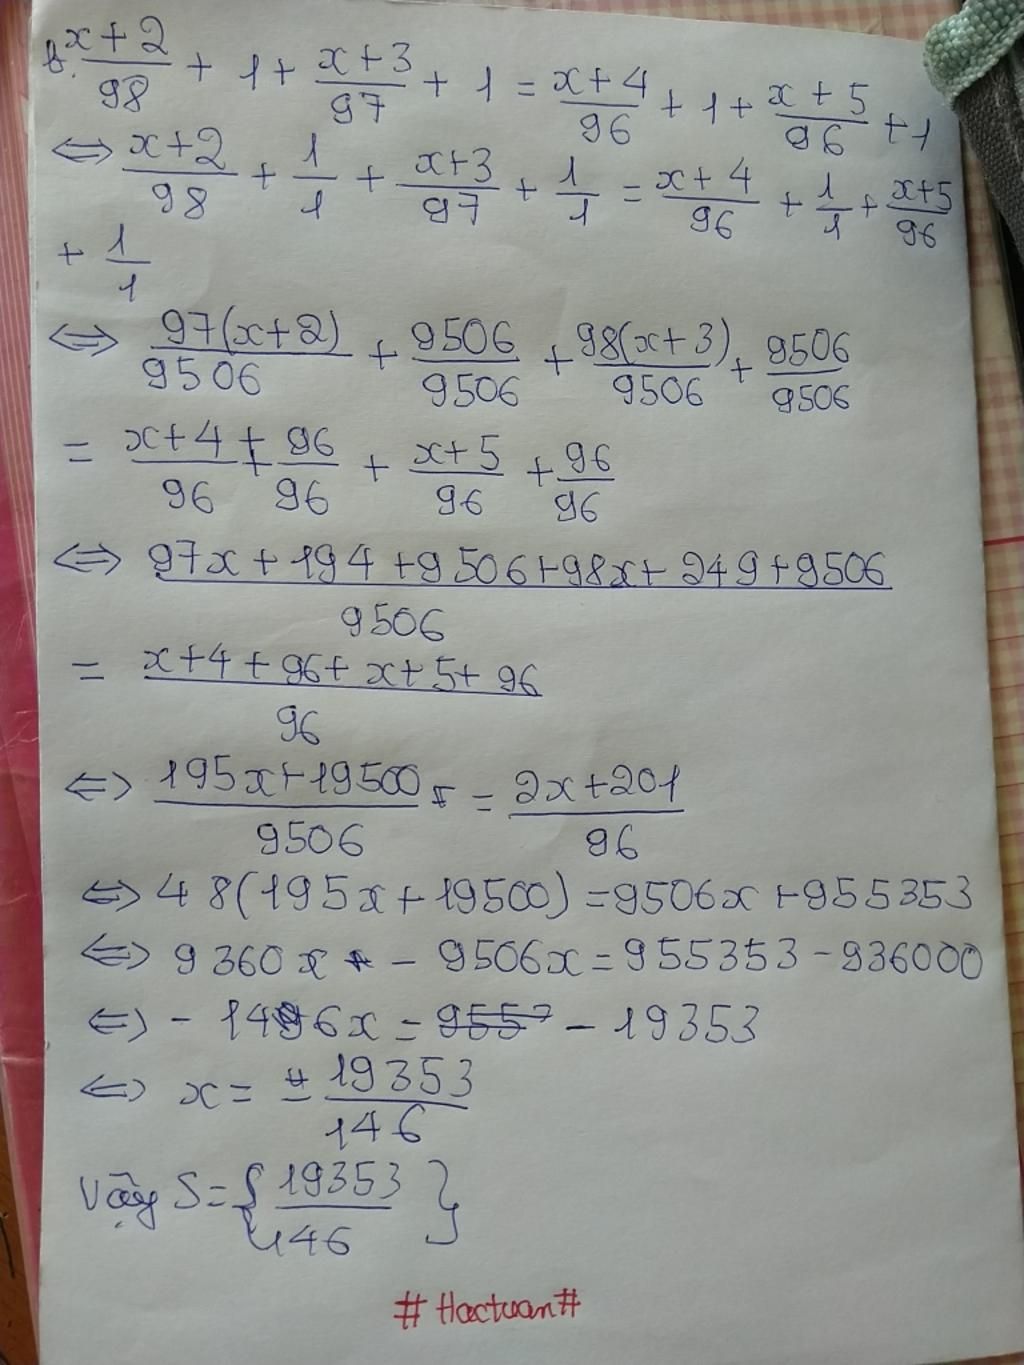 b. (x+2)/98 + 1 + (x+3)/97 + 1 = (x+4)/96 + 1 + (x+5)/96 + 1
⇔ (x+2)/98 + 1/1 + (x+3)/97 + 1/1 = (x+4)/96 + 1/1 + (x+5)/96
+ 1/1
⇔ 97(x+2)/9506 + 9506/9506 + 98(x+3)/9506 + 9506/9506
= (x+4)/96 + 96/96 + (x+5)/96 + 96/96
⇔ (97x + 194 + 9506 + 98x + 249 + 9506)/9506
= (x+4 + 96 + x+5 + 96)/96
⇔ (195x + 19500)/9506 = (2x + 201)/96
⇔ 48(195x + 19500) = 9506x + 955353
⇔ 9360x - 9506x = 955353 - 936000
⇔ - 146x = - 19353
⇔ x = 19353/146
Vậy S = { 19353/146 }
# Hactuan #